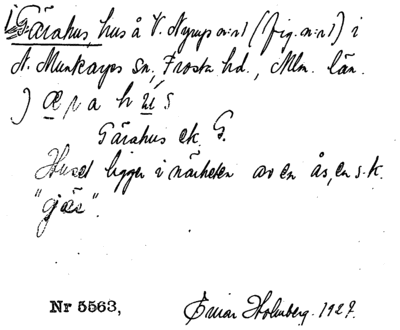 Gärahus, hus å V. Nyrup n:r 1 (fig. n:r 1) i
N. Munkarps Sn, Frosta hd., Mlm. län.
Gärahus ek. G.
Huset ligger i närheten av en ås, en s.k.
Nr 5563, Einar Holmberg. 1927.